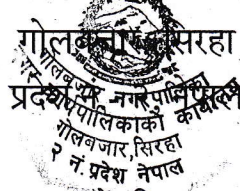 गोलबजार, सिरहा
प्रदेश नं.
गोलबजार नगरपालिका
नगर कार्यपालिकाको कार्यालय
गोलबजार,सिरहा
२ नं.प्रदेश नेपाल